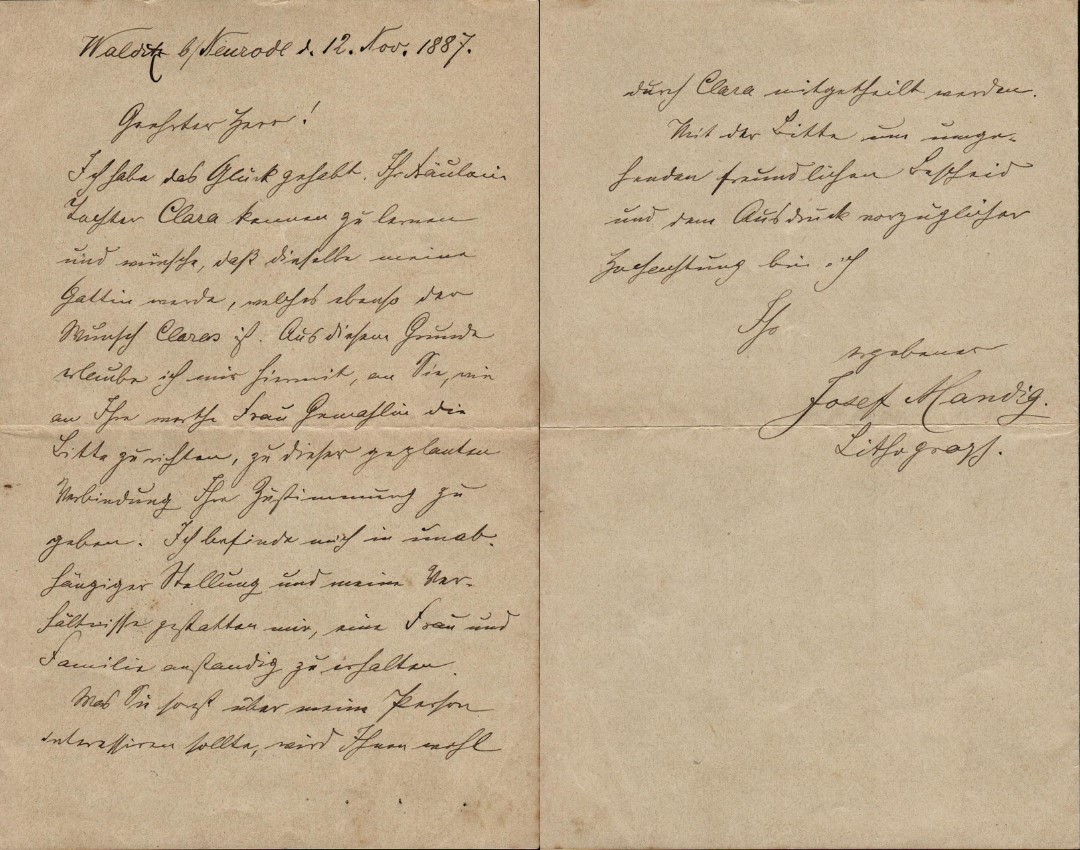 Walditz b/Neurode d. 12. Nov. 1887.
Geehrter Herr!
Ich habe das Glück gehabt, Ihr Fräulein
Tochter Clara kennen zu lernen
und wünsche, daß dieselbe meine
Gattin werde, welches ebenso der
Wunsch Claras ist. Aus diesem Grunde
erlaube ich mir hiermit, an Sie, wie
an Ihre werthe Frau Gemahlin die
Bitte zu richten, zu dieser geplanten
Verbindung Ihre Zustimmung zu
geben. Ich befinde mich in unab-
hängiger Stellung und meine Ver-
hältnisse gestatten mir, eine Frau und
Familie anständig zu erhalten.
Was Sie sonst über meine Person
interessiren sollte, wird Ihnen wohl
durch Clara mitgetheilt werden.
Mit der Bitte um umge-
henden freundlichen Bescheid
und dem Ausdruck vorzüglicher
Hochachtung bin ich
Ihr
ergebener
Josef Mandig.
Lithograph.